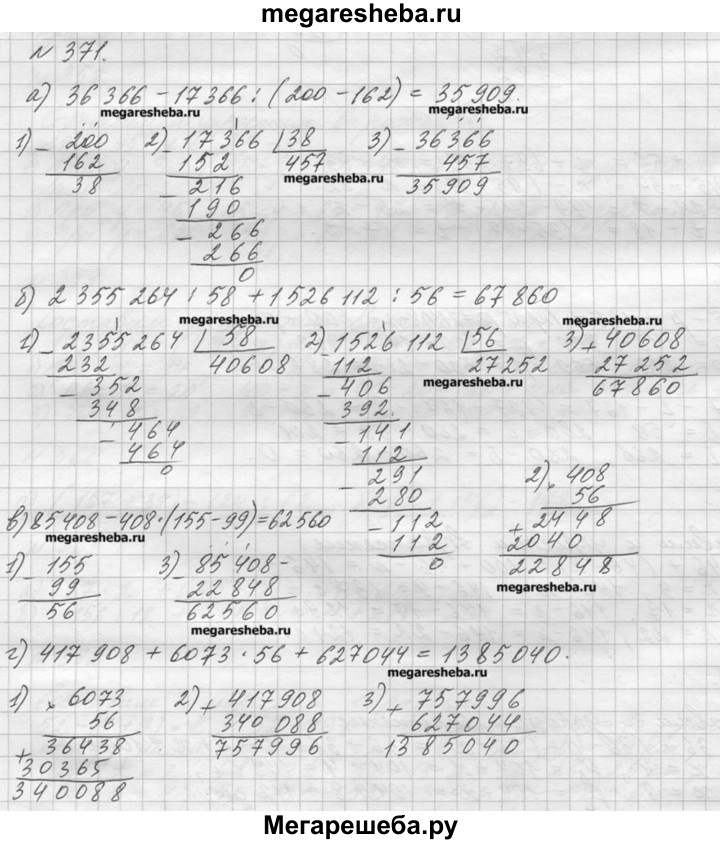 megaresheba.ru
№ 371.
а) 36 366 - 17 366 : (200 - 162) = 35 909.
megaresheba.ru megaresheba.ru
1) - 200 2) - 17 366 | 38 3) - 36366
162 152 457 457
38 - 216 megaresheba.ru 35909
190
- 266
266
0
б) 2 355 264 : 58 + 1 526 112 : 56 = 67 860
megaresheba.ru megaresheba.ru
1) - 2355264 | 58 2) - 1526 112 | 56 3) + 40608
232 40608 112 27252 27252
- 352 - 406 megaresheba.ru 67860
348 392.
- 464 - 141
464 112
0 - 291
280
- 112
112
0
2) × 408
56
+ 2448
2040
22848
megaresheba.ru
в) 85408 - 408 · (155 - 99) = 62560
megaresheba.ru
1) - 155 3) - 85 408 -
99 22 848
56 62560
megaresheba.ru
г) 417 908 + 6073 · 56 + 627044 = 1385040.
megaresheba.ru
1) × 6073 2) + 417908 3) + 757996
56 340 088 627044
+ 36438 757996 1385040
30365
340088
Мегарешеба.ру